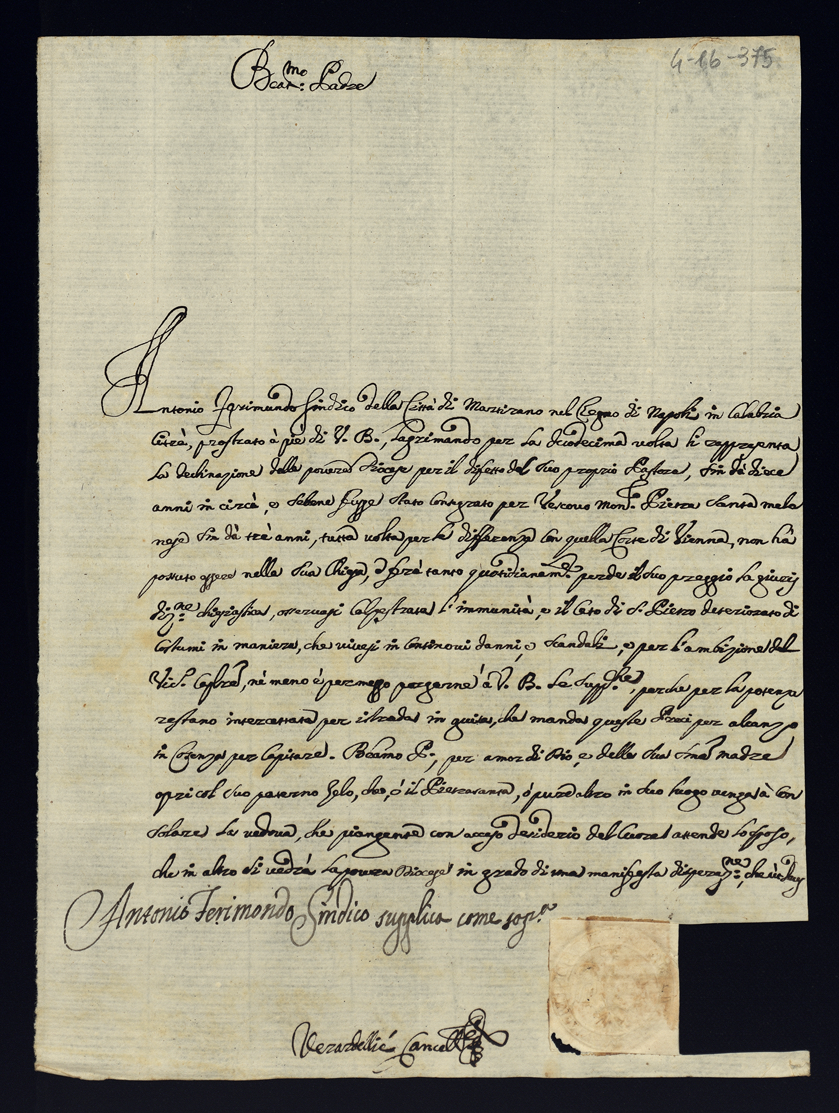 4-16-375
Beat.mo Padre
Antonio Sindico della Città di Martirano nel Regno di Napoli in Calabria
Citrà, prostrato à piè di V. B., lagrimando per la duodecima volta li rappresenta
la declinazione della povera Diocese per il difetto del suo proprio Pastore, sin dà diece
anni in circà, e sebene fusse stato consegrato per Vescovo Mon.r Pietra Santa mela
nese sin dà trè anni, tutta volta per le differenze con quella Corte di Vienna, non hà
possuto essere nella sua Chiesa, e frà tanto quotidianam.te perde il suo preggio la giuris
diz.ne chiesiastica, osservasi calpestrata l'immunità, e il Ceto di S. Pietro deteriorato di
costumi in maniera, che vivesi in continovi danni, e scandali, e per l'ambizione del
Vic.o né meno è permesso porgerne à V. B. le supp.che, perche per la potenza
restano intercettate per istrada in guisa, che manda queste Preci per
in Cosenza per capitare. Bẽamo P., per amor di Dio, e della sua madre
opri col suo paterno zelo, che, ò il Pietrasanta, ò pure altro in suo luogo venga à con
solare la vedova, che piangente con acceso desiderio del cuore attende lo sposo,
che in altro si vedrà la povera Diocese in grado di una manifesta disperaz.ne, che
Antonio Ferimondo Sindico supplica come sop.a
Cancell.e